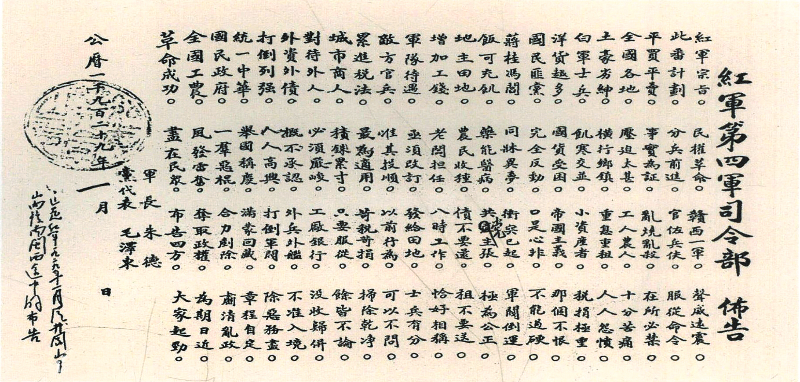 紅軍第四軍司令部佈告
紅軍宗旨。民權革命。贛西一軍。聲威遠震。
此番計劃。分兵前進。官佐兵伕。服從命令。
平買平賣。事實為証。亂燒亂殺。在所必禁。
全國各地。壓迫太甚。工人農人。十分苦痛。
土豪劣紳。橫行鄉鎮。重息重租。人人怨憤。
白軍士兵。飢寒交並。小資產者。稅捐極重。
洋貨越多。國貨受困。帝國主義。那個不恨。
國民匪黨。完全反動。口是心非。不能過硬。
蔣桂馮閻。同床異夢。衝突已起。軍閥倒運。
飯可充飢。藥能醫病。共黨主張。極為公正。
地主田地。農民收種。債不要還。租不要送。
增加工錢。老闆担任。八時工作。恰好相稱。
軍隊待遇。亟須改訂。發給田地。士兵有分。
敵方官兵。准其投順。以前行為。可以不問。
累進稅法。最為適用。苛稅苛捐。掃除乾淨。
城市商人。積銖累寸。只要服從。餘皆不論。
對待外人。必須嚴峻。工廠銀行。沒收歸併。
外資外債。概不承認。外兵外艦。不准入境。
打倒列强。人人高興。打倒軍閥。除惡務盡。
統一中華。舉國稱慶。滿蒙回藏。章程自定。
國民政府。一羣惡棍。合力剷除。肅清亂政。
全國工農。風發雷奮。奪取政權。為期日近。
革命成功。盡在民眾。布告四方。大家起勁。
軍長 朱德
黨代表 毛澤東
公曆一千九百二十九年一月 日
紅軍一九二九年一月從井岡山
向贛南閩西途中的布告